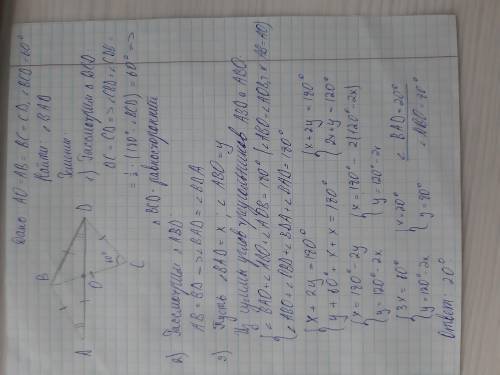 Дано: AO=AB=BC=CD, ∠BCD=60°
Найти: ∠BAD
Решение
A
B
O
D
60°
C
1) Рассмотрим △BCD
BC=CD => ∠CBD=∠CDB=
= 1/2 · (180°-∠BCD) = 60° =>
△BCD - равносторонний
2) Рассмотрим △ABD
AB=BD => ∠BAD=∠BDA
3) Пусть ∠BAD=x; ∠ABO=y
Из суммы углов треугольников ABD и ABO:
{∠BAO+∠ABO+∠AOB=180° (∠ABO=∠AOB, т.к. AB=AO)
{∠ABO+∠OBD+∠BDA+∠BAD=180°
{x+2y=180°
{y+60°+x+x=180°
{x+2y=180°
{2x+y=120°
{x=180°-2y
{y=120°-2x
{x=180°-2(120°-2x)
{y=120°-2x
{3x=60°
{y=120°-2x
{x=20°
{y=80°
∠BAD=20°
∠ABO=80°
Ответ: 20°